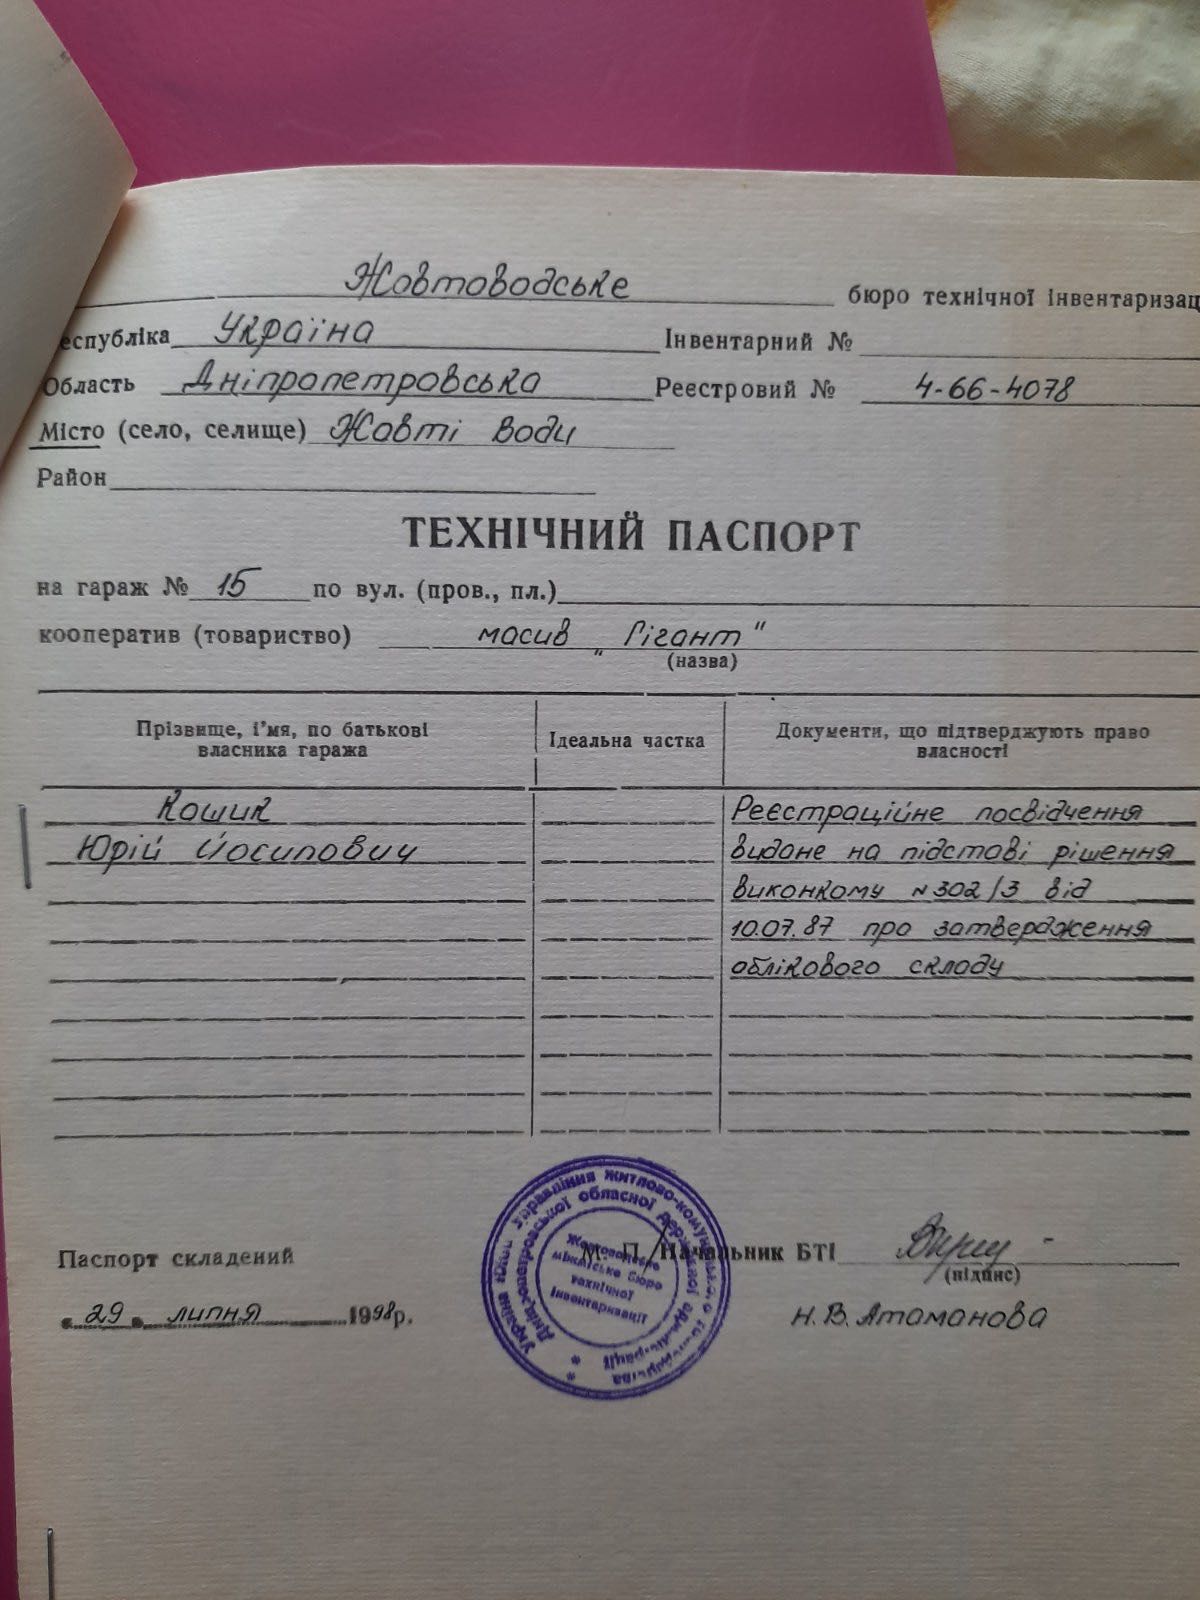 Жовтоводське бюро технічної інвентаризац
еспубліка Україна Інвентарний №
Область Дніпропетровська Реєстровий № 4-66-4078
Місто (село, селище) Жовті Води
Район
ТЕХНІЧНИЙ ПАСПОРТ
на гараж № 15 по вул. (пров., пл.)
кооператив (товариство) масив „Гігант"
(назва)
Прізвище, і'мя, по батькові власника гаража
Ідеальна частка
Документи, що підтверджують право власності
Кошик
Юрій Йосипович
Реєстраційне посвідчення
видане на підставі рішення
виконкому №302/3 від
10.07.87 про затвердження
облікового складу
Паспорт складений
М. П. Начальник БТІ
(підпис)
„29" липня 1998р.
Н.В. Атаманова
Україна Управління житлово-комунального господарства
Дніпропетровської обласної державної адміністрації
Жовтоводське
міжміське бюро
технічної
інвентаризації